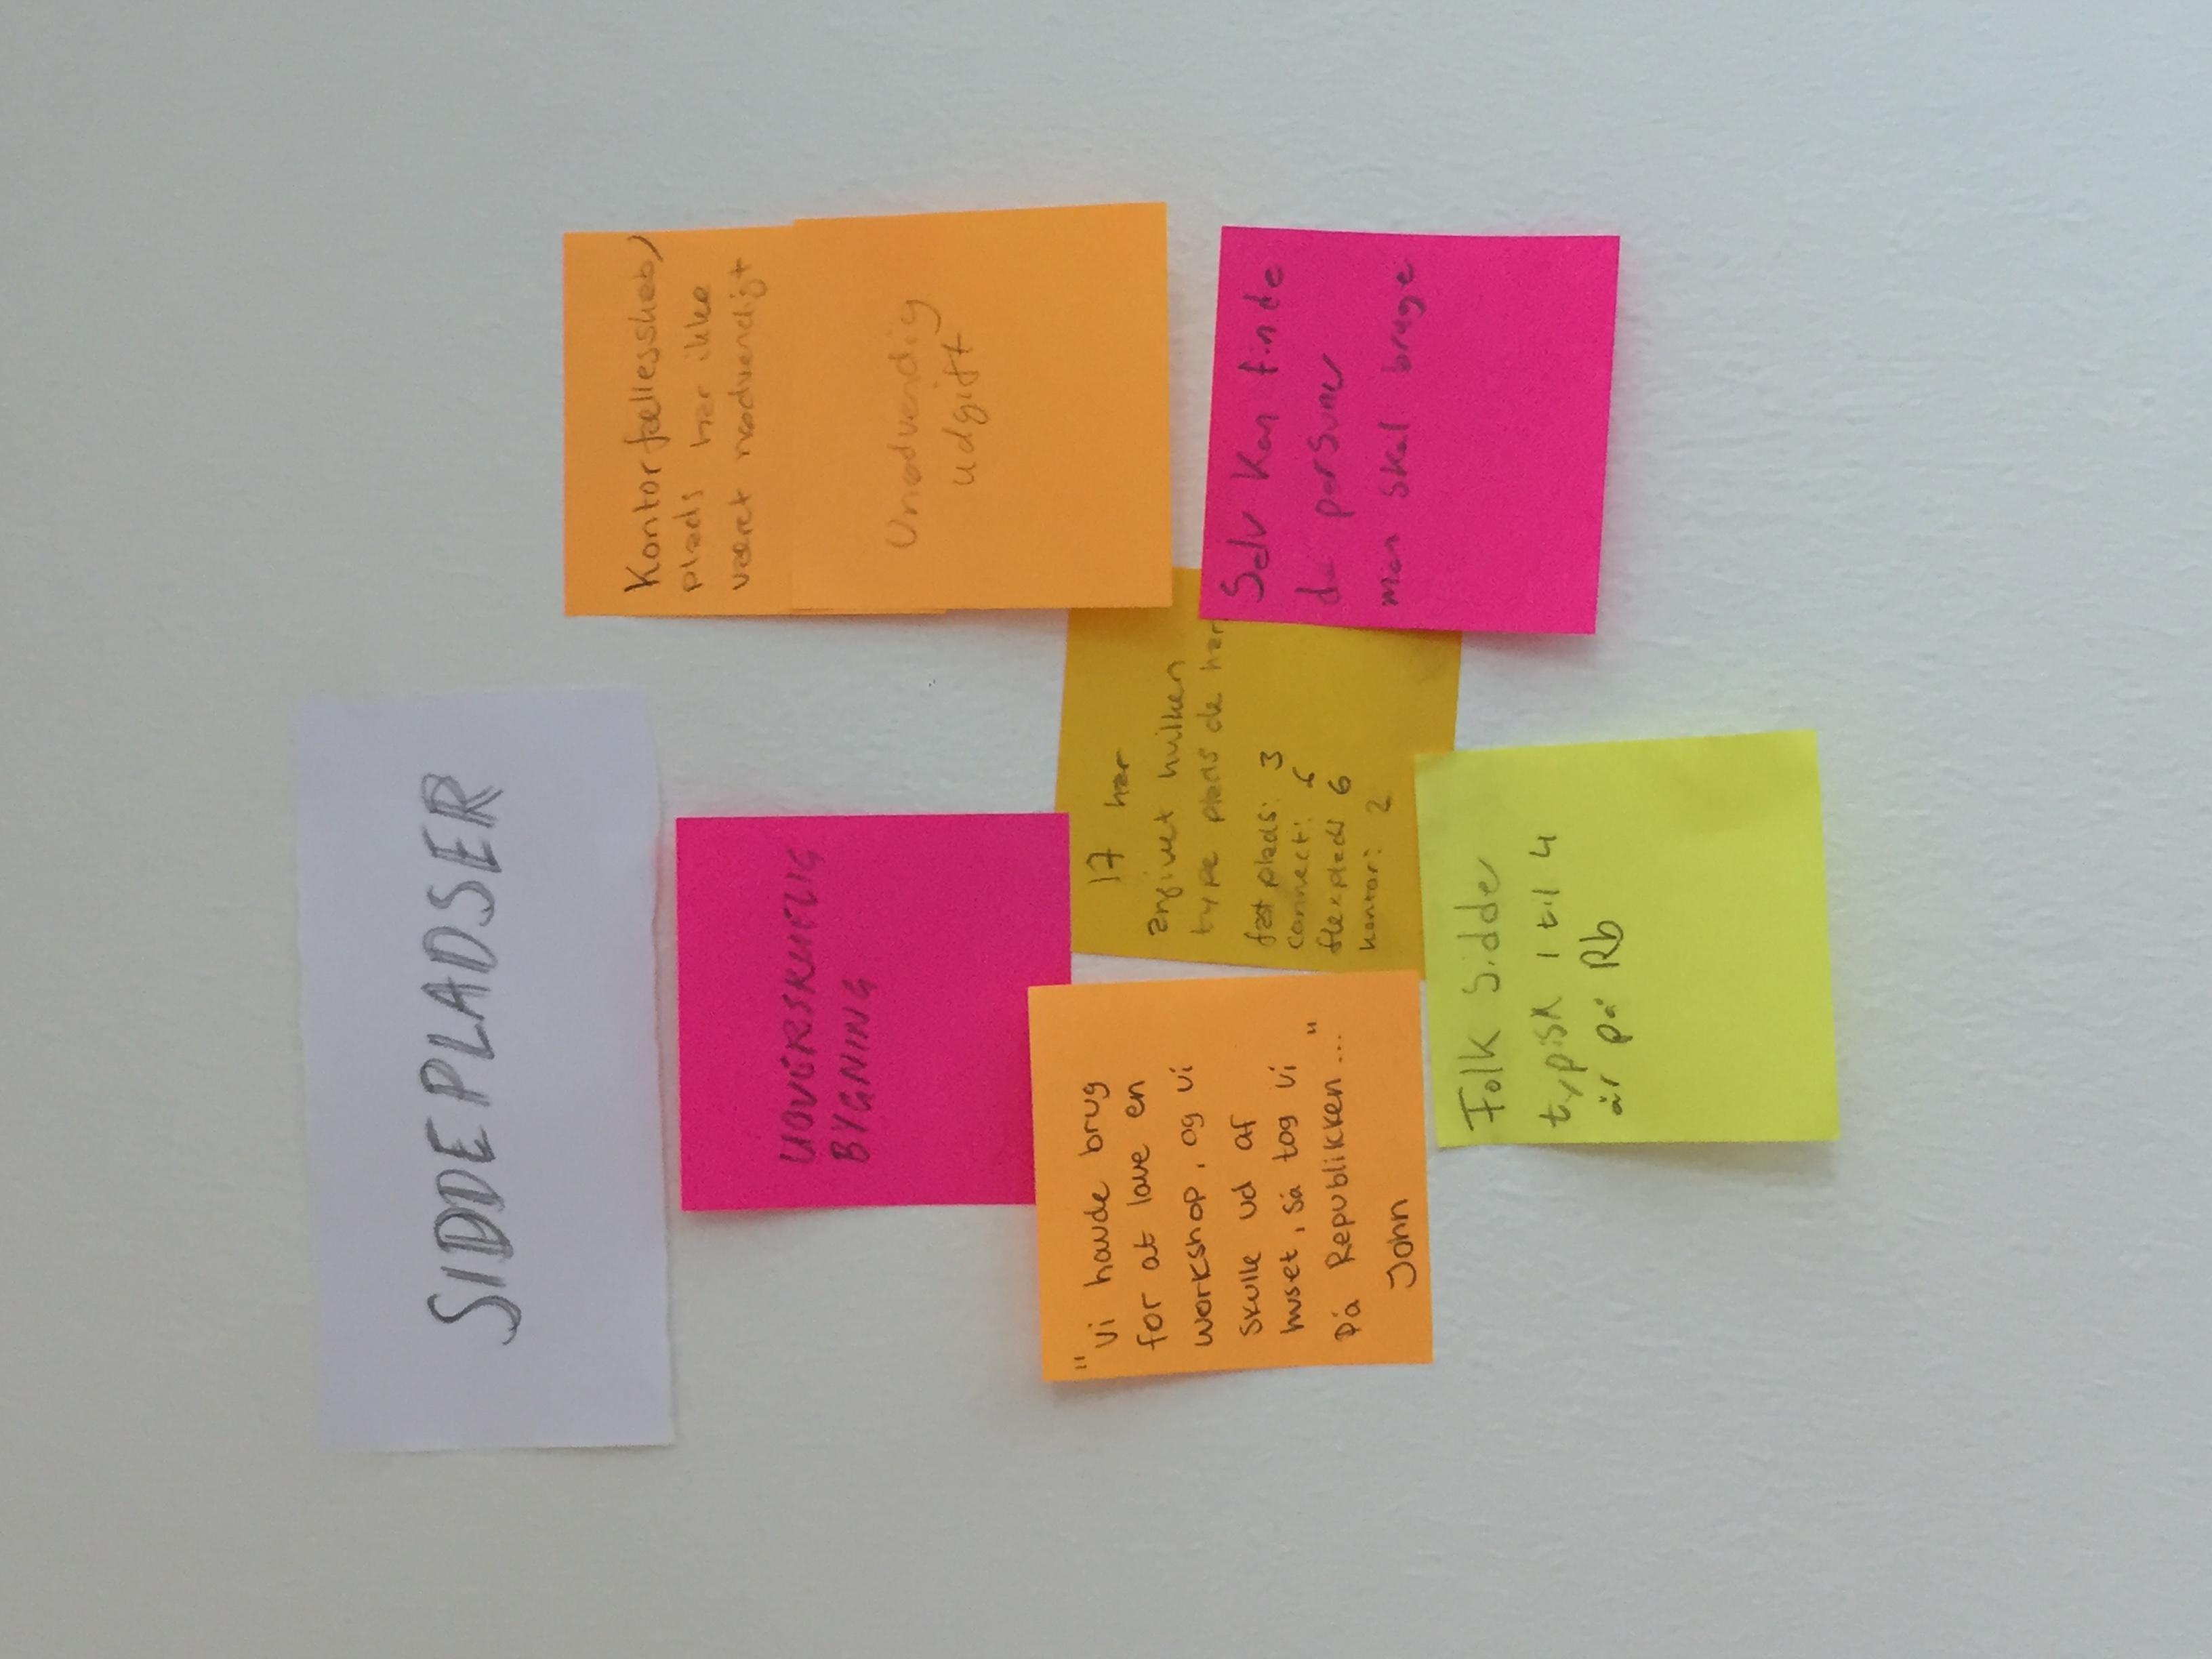 SIDDEPLADSER
UOVERSKUELIG
BYGNING
Kontorfællesskab/
plads har ikke
været nødvendigt
Unødvendig
udgift
"Vi havde brug
for at lave en
workshop, og vi
skulle ud af
huset, så tog vi
på Republikken..."
John
17 har
angivet hvilken
type plads de har
fast plads: 3
connect: 6
flexplads 6
kontor: 2
Selv kan finde
de personer
man skal bruge
Folk sidder
typisk 1 til 4
år på Rb